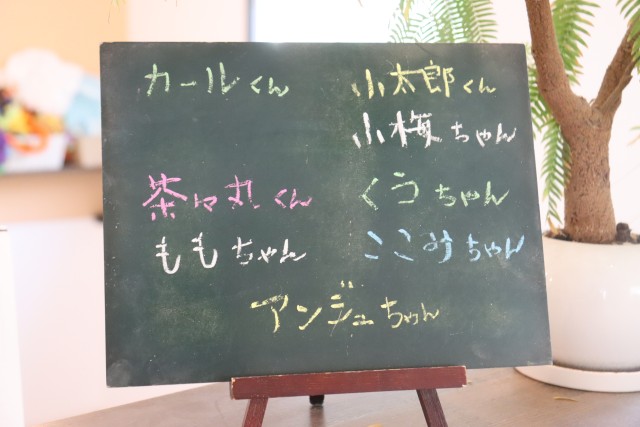 カールくん 小太郎くん
小梅ちゃん
茶々丸くん くうちゃん
ももちゃん ここみちゃん
アンジュちゃん